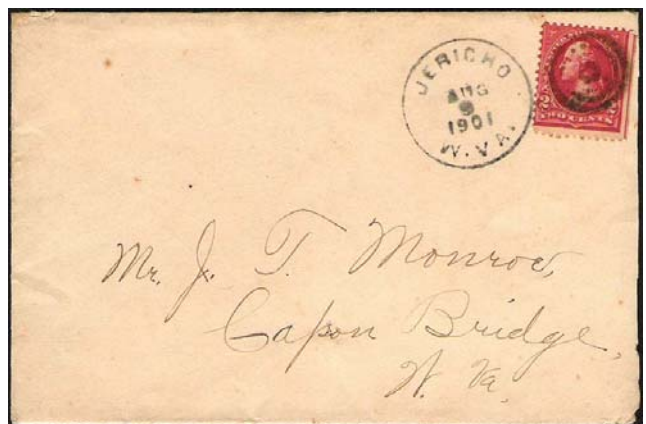 JERICHO
AUG
9
1901
W. VA.
2
TWO CENTS
Mr. J. T. Monroe,
Capon Bridge,
W. Va.